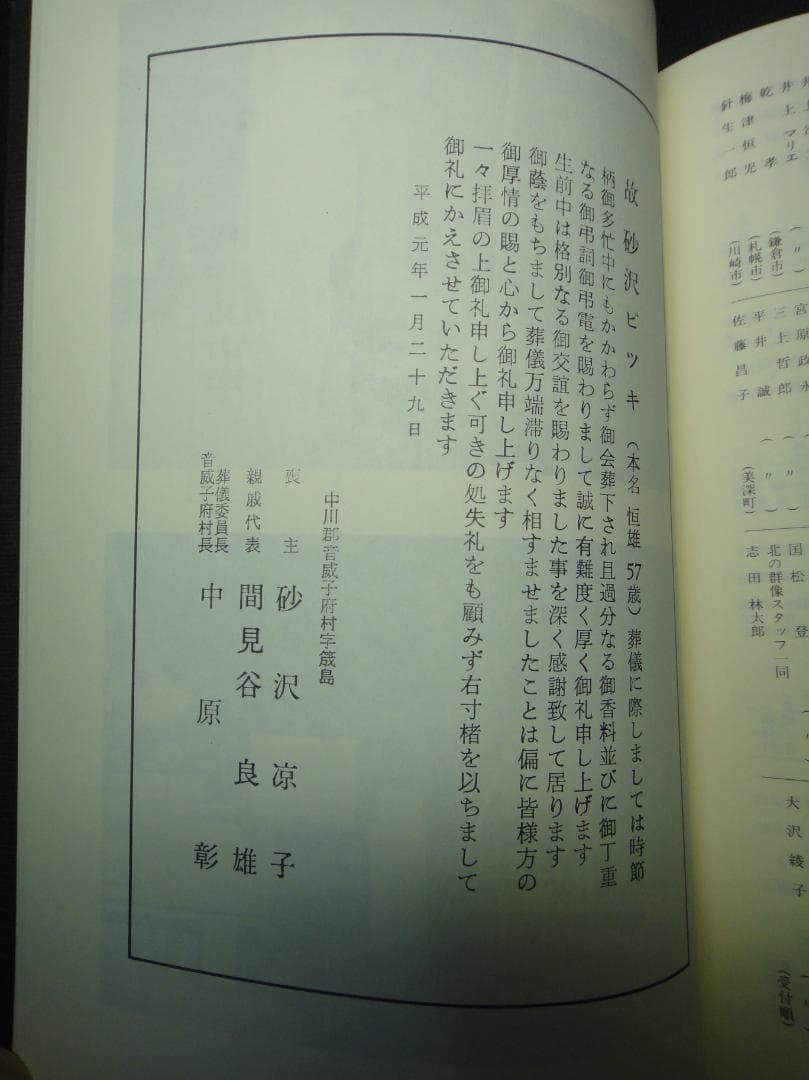 井上マリエ（〃）
乾孝（鎌倉市）
梅津恒児（札幌市）
針生一郎（川崎市）
宮原政
三上哲郎（〃）
平井誠（〃）
佐藤昌子（美深町）
国松登
北の群像スタッフ一同
志田林太郎
大沢綾子
（受付順）
故砂沢ビツキ（本名恒雄57歳）葬儀に際しましては時節
柄御多忙中にもかかわらず御会葬下され且過分なる御香料並びに御丁重
なる御弔詞御弔電を賜わりまして誠に有難度く厚く御礼申し上げます
生前中は格別なる御交誼を賜わりました事を深く感謝致して居ります
御蔭をもちまして葬儀万端滞りなく相すませましたことは偏に皆様方の
御厚情の賜と心から御礼申し上げます
一々拝眉の上御礼申し上ぐ可きの処失礼をも顧みず右寸楮を以ちまして
御礼にかえさせていただきます
平成元年一月二十九日
中川郡音威子府村字筬島
喪主　砂沢凉子
親戚代表　間見谷良雄
葬儀委員長
音威子府村長　中原彰